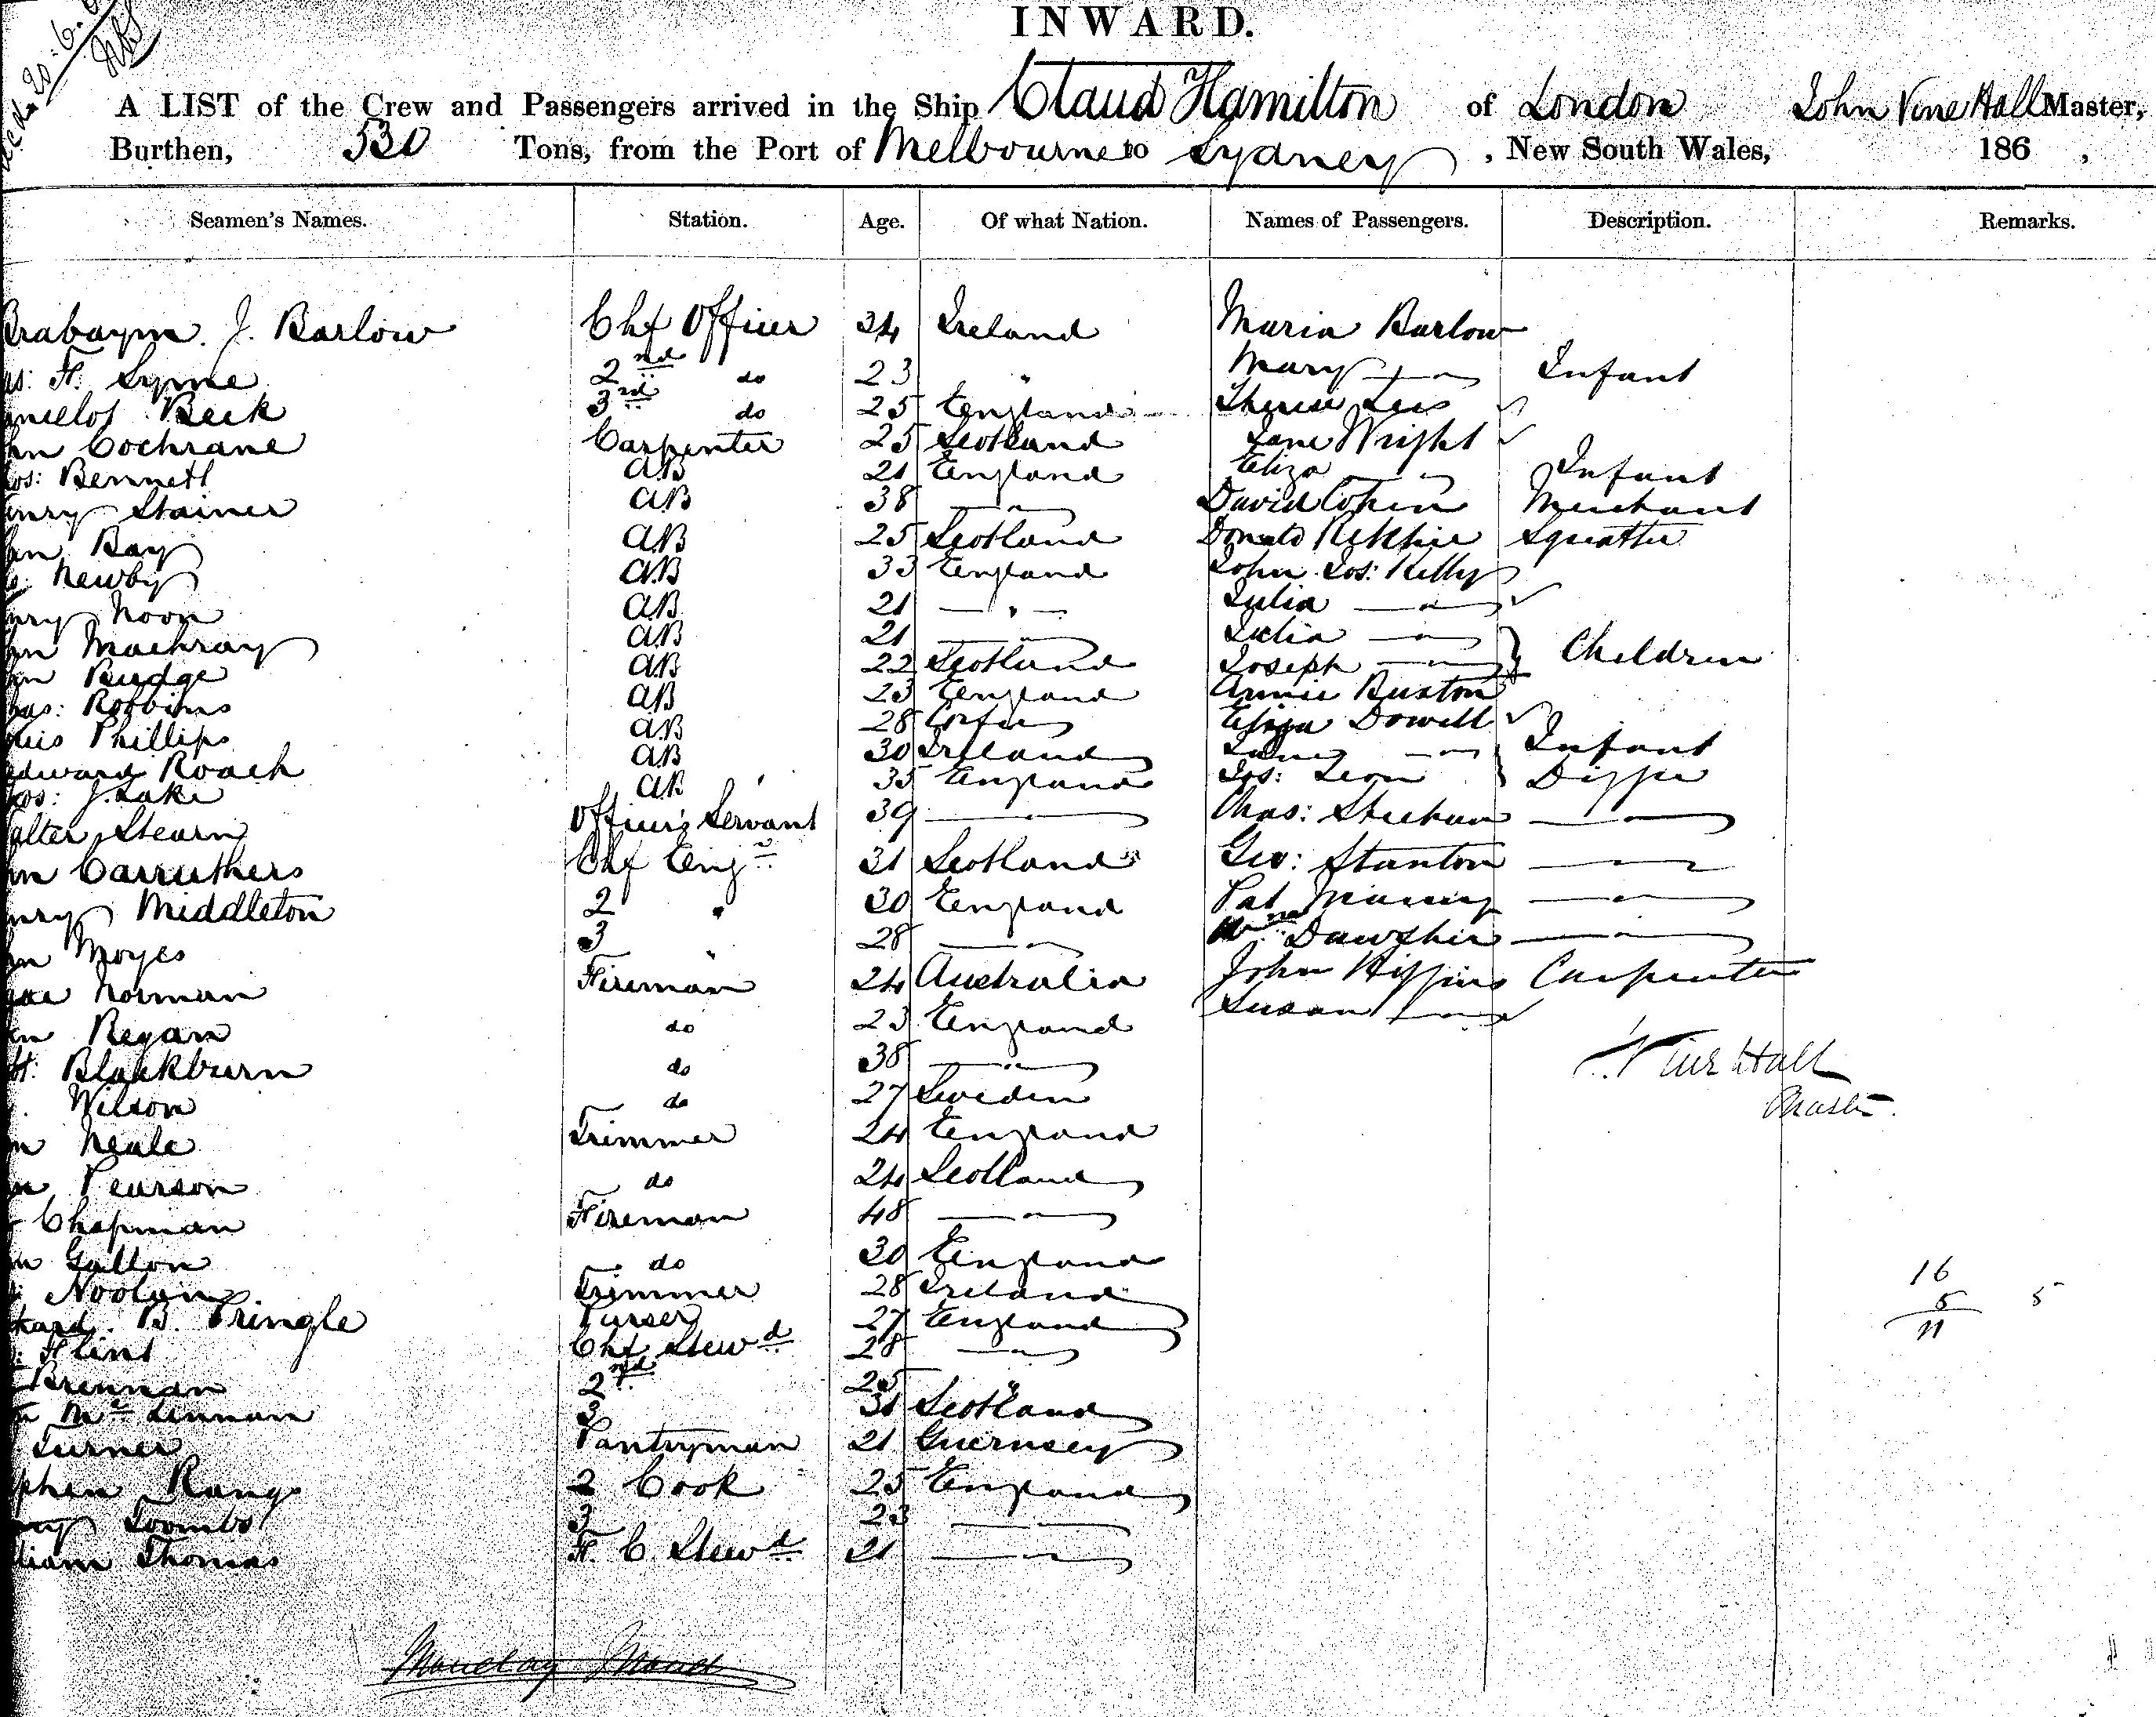 INWARD.
A LIST of the Crew and Passengers arrived in the Ship Claud Hamilton of London John Vine Hall Master,
Burthen, 530 Tons, from the Port of Melbourne to Sydney, New South Wales, 186 ,
Seamen's Names. Station. Age. Of what Nation. Names of Passengers. Description. Remarks.
J. Barlow Chf Officer 34 Ireland Maria Barlow
H. Syme 2nd do 23 " Mary —"— Infant
Beck 3rd do 25 England
Cochrane Carpenter 25 Scotland Jane Wright
Bennett AB 21 England Eliza —"— Infant
Stainer AB 38 —"— David Cohen Merchant
Bay AB 25 Scotland Donald Ritchie Squatter
Newby AB 33 England John Jos: Kelly
Noon AB 21 —"— Julia —"—
Machray AB 21 —"— Julia —"— Children
Budge AB 22 Scotland Joseph —"—
Robbins AB 23 England Annie Buxton
Phillips AB 28 Corfu Eliza Dowell
Edward Roach AB 30 Ireland —"— Infant
J. Lake AB 35 England Jos: Leon Digger
Stearn Officer's Servant 39 —"— Chas: —"—
Carruthers Chf Engr 31 Scotland Geo: Stanton —"—
Middleton 2 " 30 England Pat —"—
Moyes 3 " 28 —"— Wm —"—
Norman Fireman 24 Australia John Higgins Carpenter
Regan do 23 England Susan —"—
Blackburn do 38 —"— J. Vine Hall
Wilson do 27 Sweden Master.
Neale Trimmer 24 England
Pearson do 24 Scotland
Chapman Fireman 48 —"—
Gallon do 30 England
Noolan Trimmer 28 Ireland
B. Pringle Purser 27 England
Flint Chf Stewd 28 —"—
Brennan 2nd 25 "
McLennan 3 31 Scotland
Turner Pantryman 21 Guernsey
2 Cook 25 England
Toombs 3 23 —"—
Thomas F. C. Stewd 21 —"—
16
5 5
11